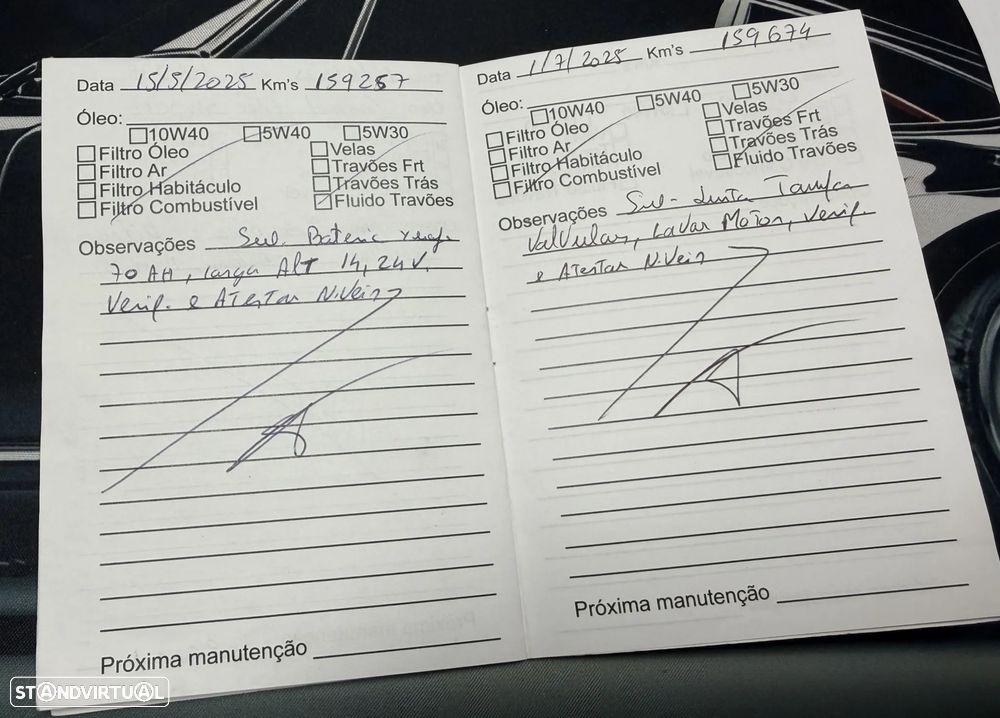 Data 15/5/2025 Km's 159257
Óleo:
10W40 5W40 5W30
Filtro Óleo Velas
Filtro Ar Travões Frt
Filtro Habitáculo Travões Trás
Filtro Combustível Fluido Travões
Observações Sub. Bateria
70 AH, carga Alt 14,24V.
Verif. e Atestar Niveis
Próxima manutenção
Data 1/7/2025 Km's 159674
Óleo:
10W40 5W40 5W30
Filtro Óleo Velas
Filtro Ar Travões Frt
Filtro Habitáculo Travões Trás
Filtro Combustível Fluido Travões
Observações Sub. Junta Tampa
Valvulas, Lavar Motor, Verif.
e Atestar Niveis
Próxima manutenção
STANDVIRTUAL